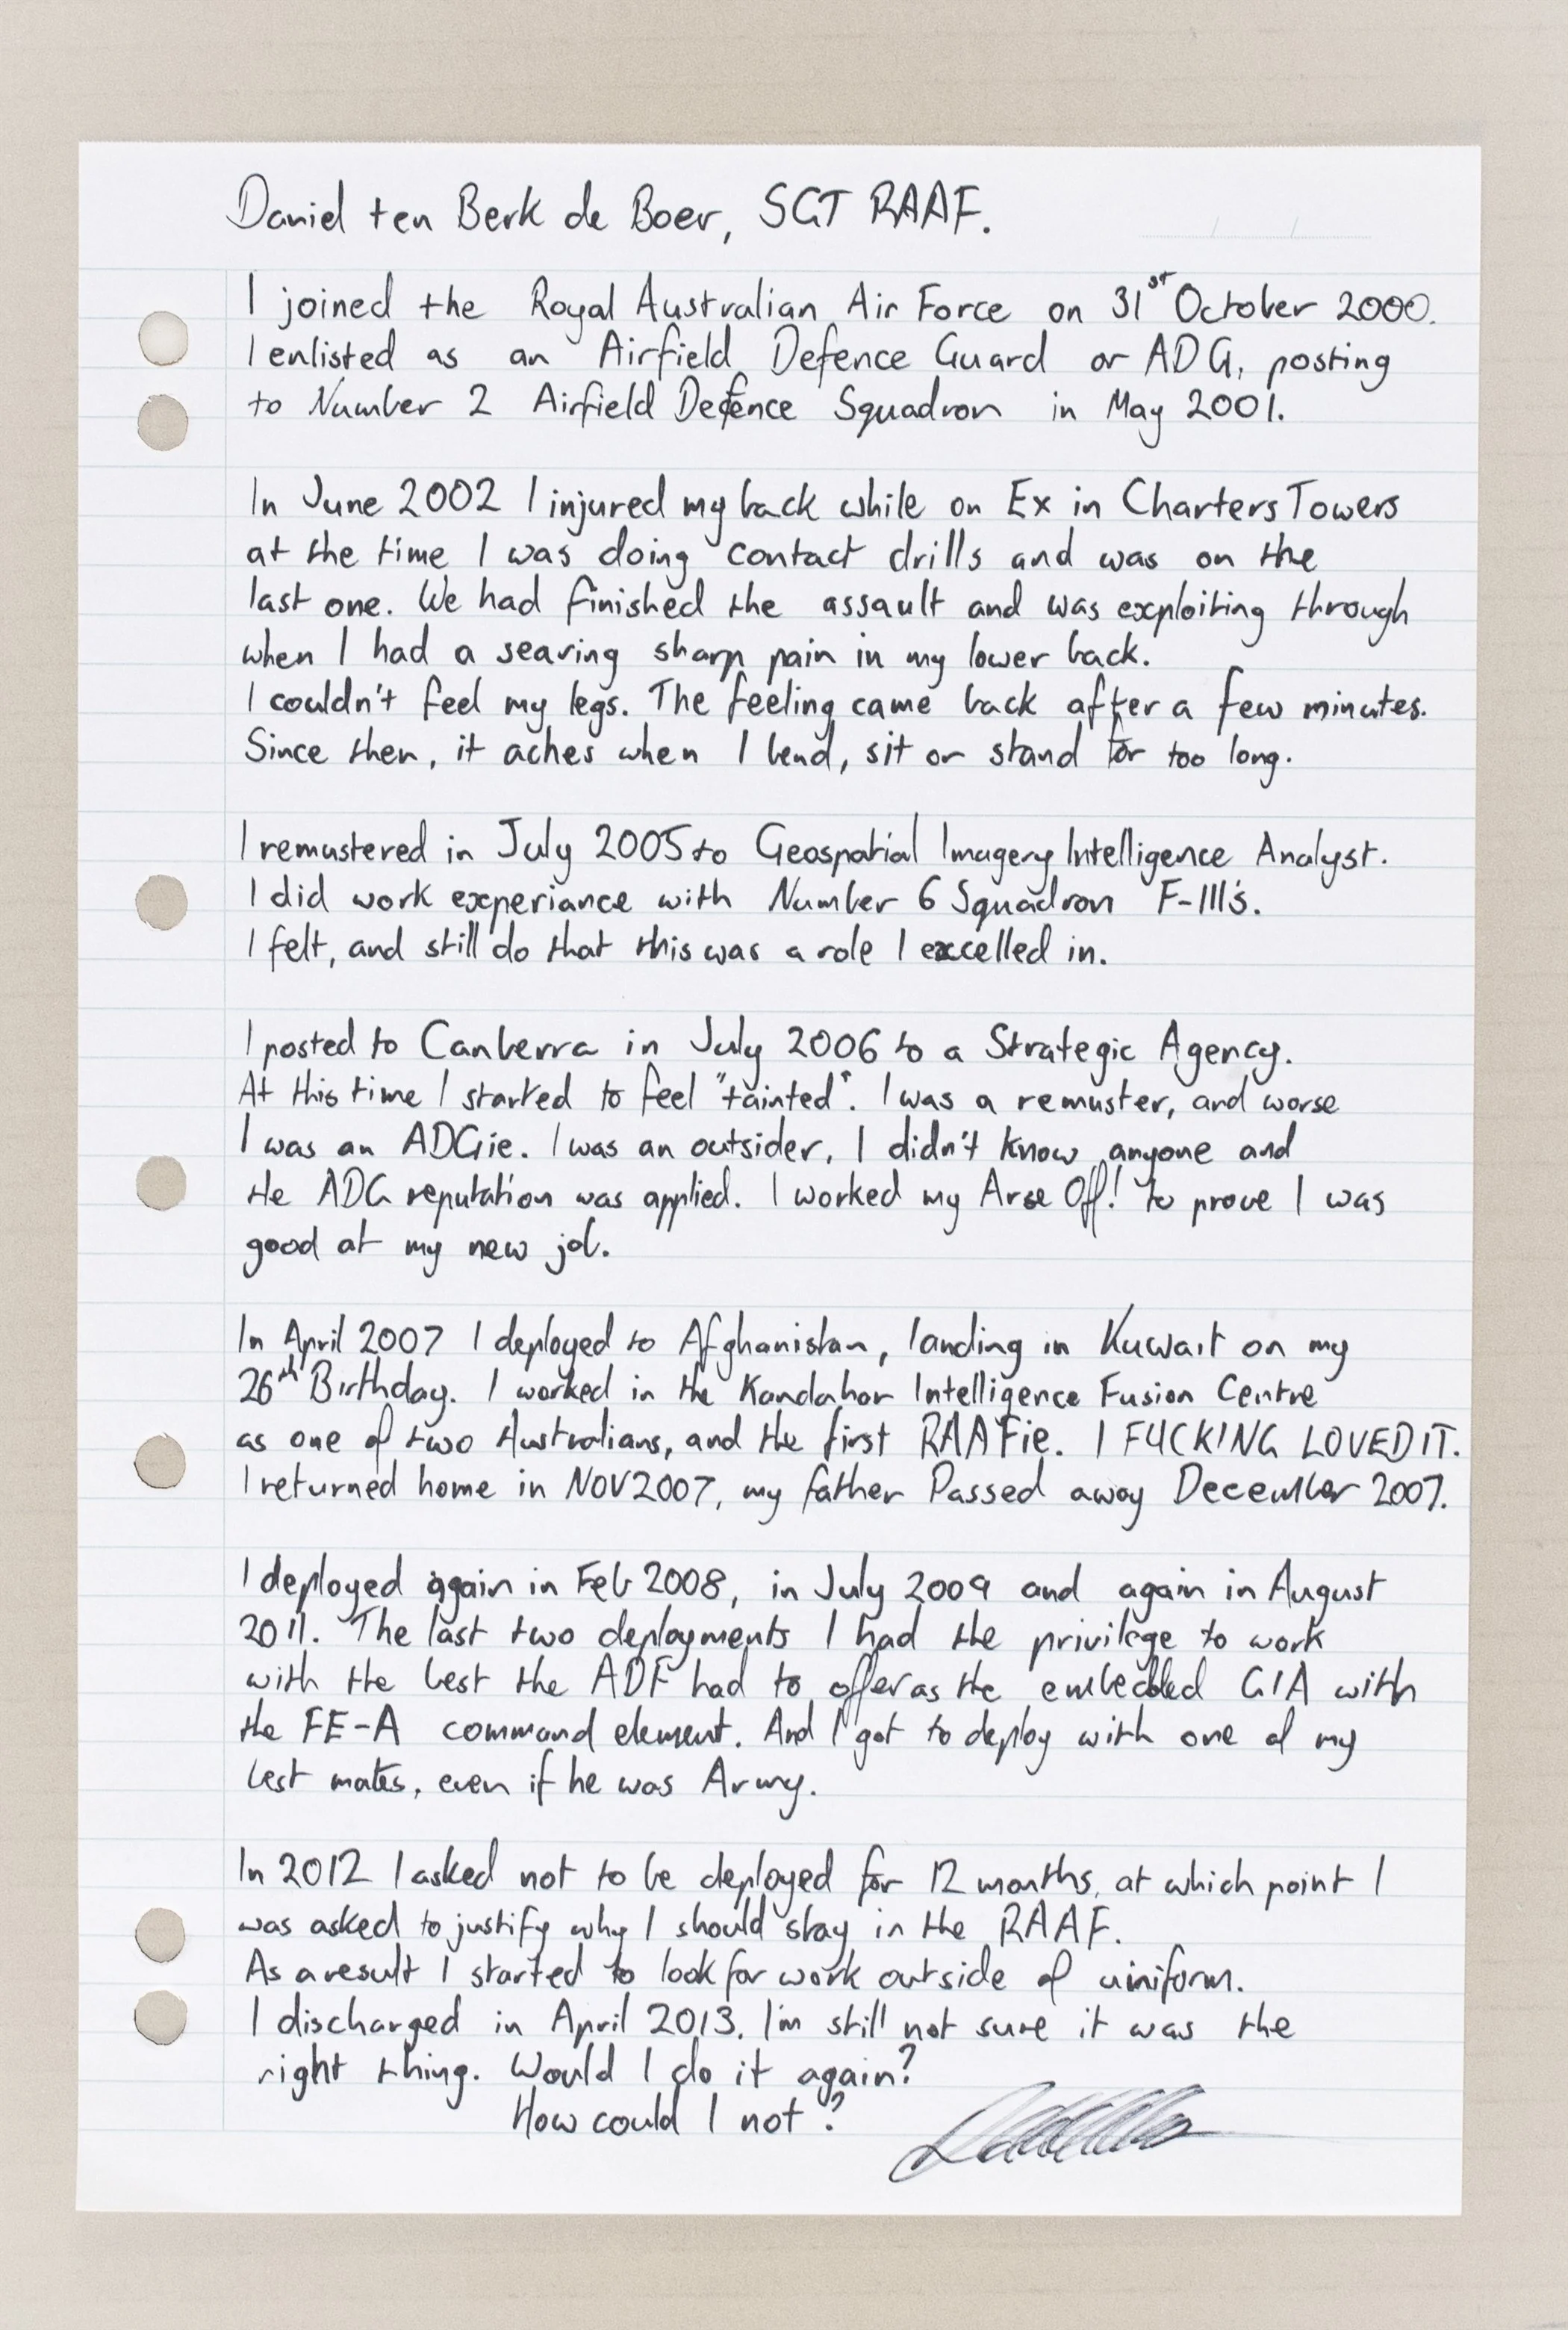 Daniel ten Berk de Boer, SGT RAAF.
I joined the Royal Australian Air Force on 31st October 2000.
I enlisted as an Airfield Defence Guard or ADG, posting
to Number 2 Airfield Defence Squadron in May 2001.
In June 2002 I injured my back while on Ex in Charters Towers
at the time I was doing contact drills and was on the
last one. We had finished the assault and was exploiting through
when I had a searing sharp pain in my lower back.
I couldn't feel my legs. The feeling came back after a few minutes.
Since then, it aches when I bend, sit or stand for too long.
I remustered in July 2005 to Geospatial Imagery Intelligence Analyst.
I did work experiance with Number 6 Squadron F-111's.
I felt, and still do that this was a role I excelled in.
I posted to Canberra in July 2006 to a Strategic Agency.
At this time I started to feel "tainted". I was a remuster, and worse
I was an ADGie. I was an outsider, I didn't know anyone and
the ADG reputation was applied. I worked my Arse Off! to prove I was
good at my new job.
In April 2007 I deployed to Afghanistan, landing in Kuwait on my
26th Birthday. I worked in the Kandahar Intelligence Fusion Centre
as one of two Australians, and the first RAAFie. I FUCKING LOVED IT.
I returned home in NOV 2007, my father Passed away December 2007.
I deployed again in Feb 2008, in July 2009 and again in August
2011. The last two deployments I had the privilege to work
with the best the ADF had to offer as the embedded GIA with
the FE-A command element. And I got to deploy with one of my
best mates, even if he was Army.
In 2012 I asked not to be deployed for 12 months, at which point I
was asked to justify why I should stay in the RAAF.
As a result I started to look for work outside of uniform.
I discharged in April 2013. I'm still not sure it was the
right thing. Would I do it again?
How could I not?